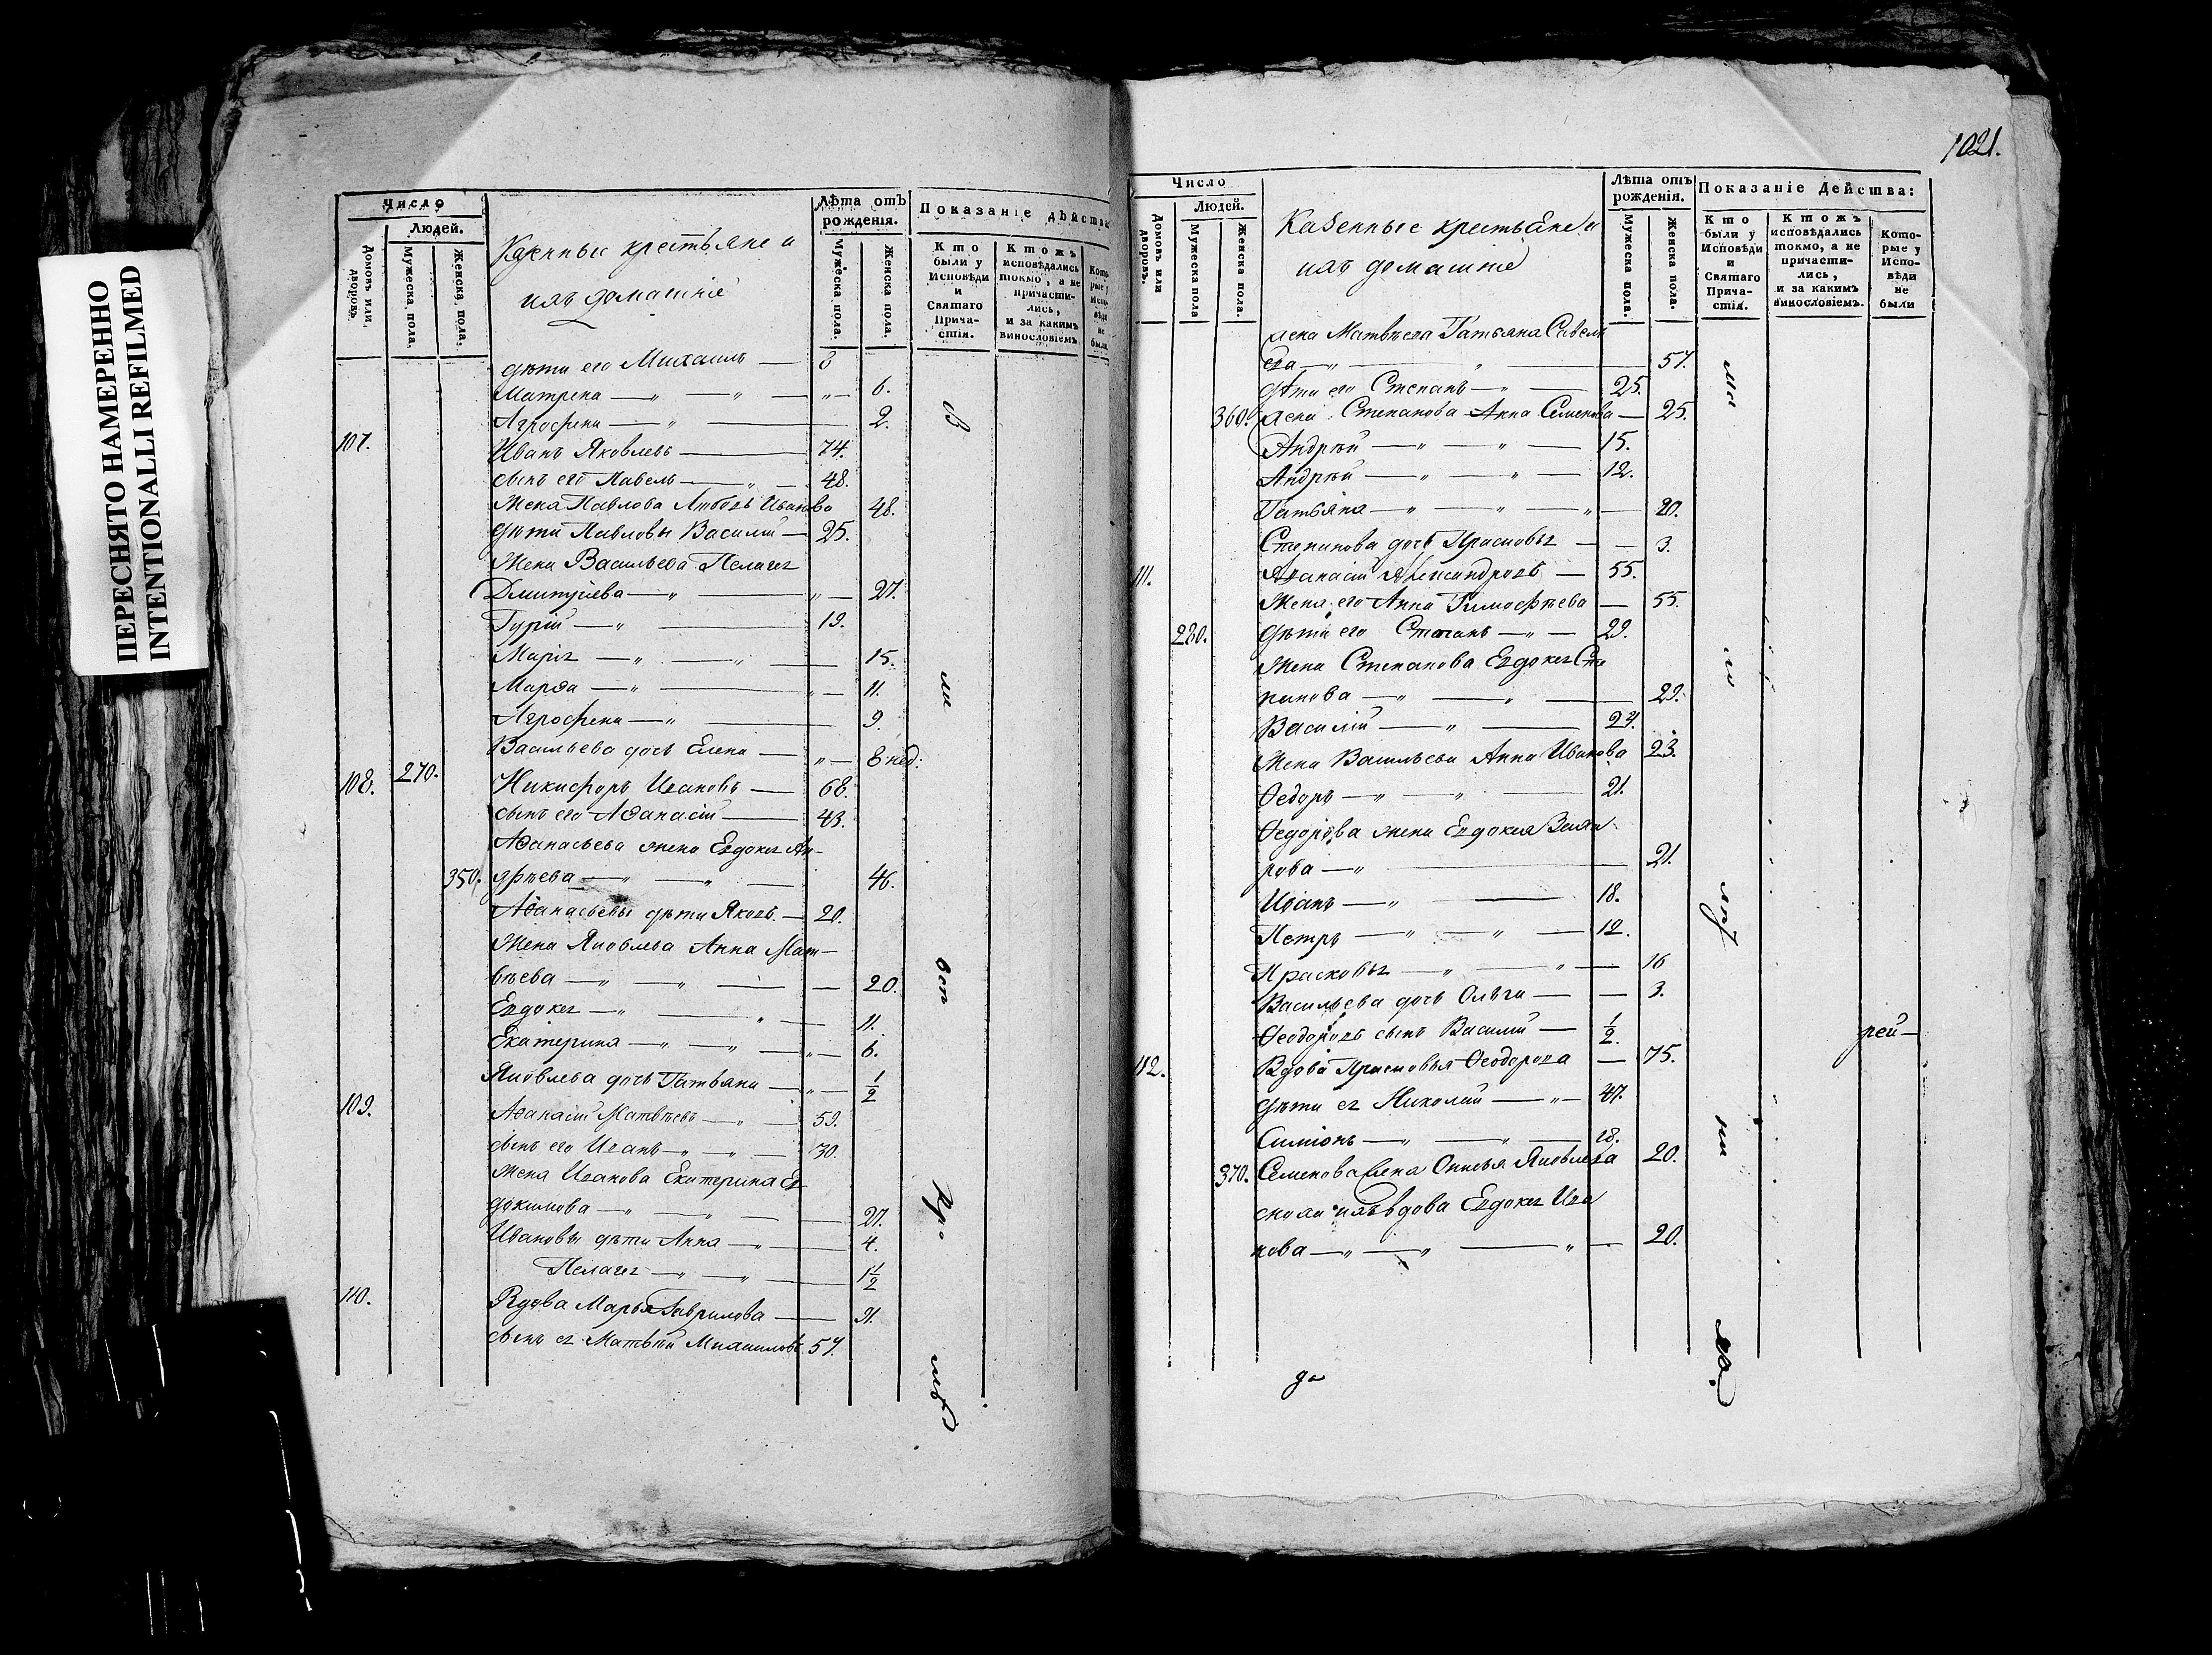 ПЕРЕСНЯТО НАМЕРЕННО
INTENTIONALLI REFILMED
Число
Людей.
Домовъ или дворовъ.
Мужеска пола.
Женска пола.
Казенные крестьяне и
ихъ домашніе
Лѣта отъ
рожденія.
Мужеска пола.
Женска пола.
Показаніе дѣйства
Кто
были у
Исповѣди
и
Святаго
Прича-
стія.
Ктожъ
исповѣдались
токмо, а не
причасти-
лись,
и за какимъ
винословіемъ.
дѣти его Михаилъ — 8
Матрена — 6.
Агрофена — 2.
107. Иванъ Яковлевъ — 74.
сынъ его Павелъ — 48.
Жена Павлова Любовь Иванова 48.
дѣти Павловы Василій — 25.
Жена Васильева Пелагея
Дмитріева — 27.
Гурій — 19.
Марія — 15.
Марѳа — 11.
Агрофена — 9.
Васильева дочь Елена — 8 нед:
108. 270. Никифоръ Ивановъ — 68.
сынъ его Аѳанасій — 43.
Аѳанасьева жена Евдокея Ан-
350. дрѣева — 46.
Аѳанасьевы дѣти Яковъ — 20.
Жена Яковлева Анна Мат-
вѣева — 20.
Евдокея — 11.
Екатерина — 6.
Яковлева дочь Татьяна — 1/2
109. Аѳанасій Матвѣевъ — 59.
сынъ его Иванъ — 30.
Жена Иванова Екатерина Ев
докимова — 27.
Ивановы дѣти Анна — 4.
Пелагея — 1 1/2
110. Вдова Марья Гаврилова —
сынъ ея Матвѣй Михаиловъ 57.
1021.
Число
Людей.
Домовъ или дворовъ.
Мужеска пола
Женска пола.
Казенные крестьяне и
ихъ домашніе
Лѣта отъ
рожденія.
Мужеска пола.
Женска пола.
Показаніе Действа:
Кто
были у
Исповѣди
и
Святаго
Прича-
стія.
Ктожъ
исповѣдались
токмо, а не
причасти-
лись,
и за какимъ
винословіемъ.
Кото-
рые у
Испо-
вѣди
не
были
жена Матвѣева Татьяна Савель
ева — 57.
дѣти его Степанъ — 25.
360. жена Степанова Анна Семенова — 25.
Андрѣй — 15.
Андрѣй — 12.
Татьяна — 20.
Степанова дочь Прасковья — 3.
111. Аѳанасій Александровъ — 55.
Жена его Анна Тимофѣева — 55.
280. дѣти его Степанъ — 29.
Жена Степанова Евдокея Сте
панова — 29.
Василій — 24.
Жена Васильева Анна Иванова 23.
Ѳедоръ — 21.
Ѳедорова жена Евдокея
рова — 21.
Иванъ — 18.
Петръ — 12.
Прасковья — 16
Васильева дочь Ольга — 3.
Ѳеодоровъ сынъ Василій — 1/2.
рей —
112. Вдова Прасковья Ѳеодорова — 75.
дѣти ея Николай — 47.
Симіонъ — 18.
370. Семенова жена Яковлева 20.
сноха ихъ вдова Евдокея Ива
нова — 20.
да